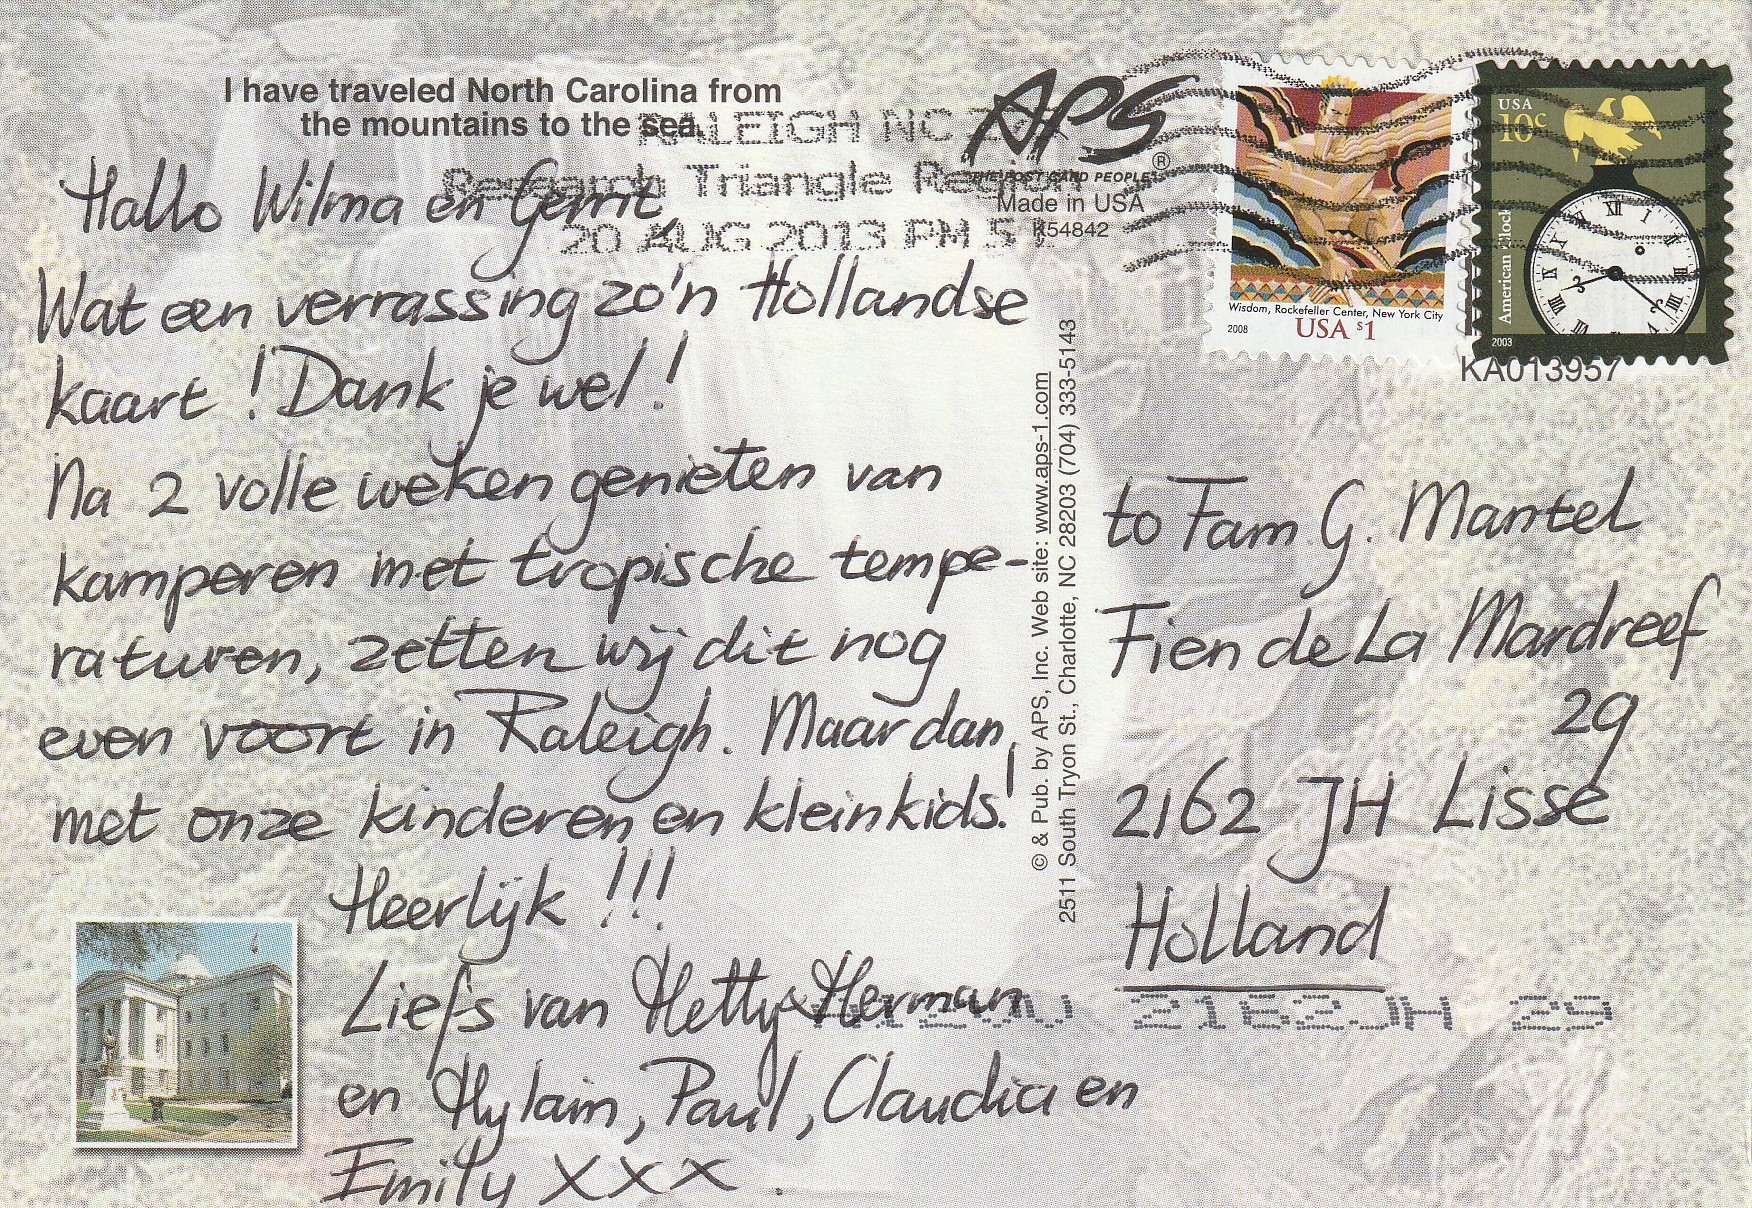 I have traveled North Carolina from
the mountains to the sea.
RALEIGH NC
Research Triangle Region
20 AUG 2013 PM 5
APS
®
THE POST CARD PEOPLE
Made in USA
K54842
Wisdom, Rockefeller Center, New York City
2008 USA $1
USA
10c
American Clock
XII I
2003
KA013957
Hallo Wilma en Gerrit,
Wat een verrassing zo'n Hollandse
kaart! Dank je wel!
Na 2 volle weken genieten van
kamperen met tropische tempe-
raturen, zetten wij dit nog
even voort in Raleigh. Maar dan
met onze kinderen en kleinkids!
Heerlijk !!!
Liefs van Hetty & Herman
en Hylain, Paul, Claudia en
Emily XXX.
© & Pub. by APS, Inc. Web site: www.aps-1.com
2511 South Tryon St., Charlotte, NC 28203 (704) 333-5143
to Fam G. Mantel
Fien de La Mardreef
29
2162 JH Lisse
Holland
2162JH 29